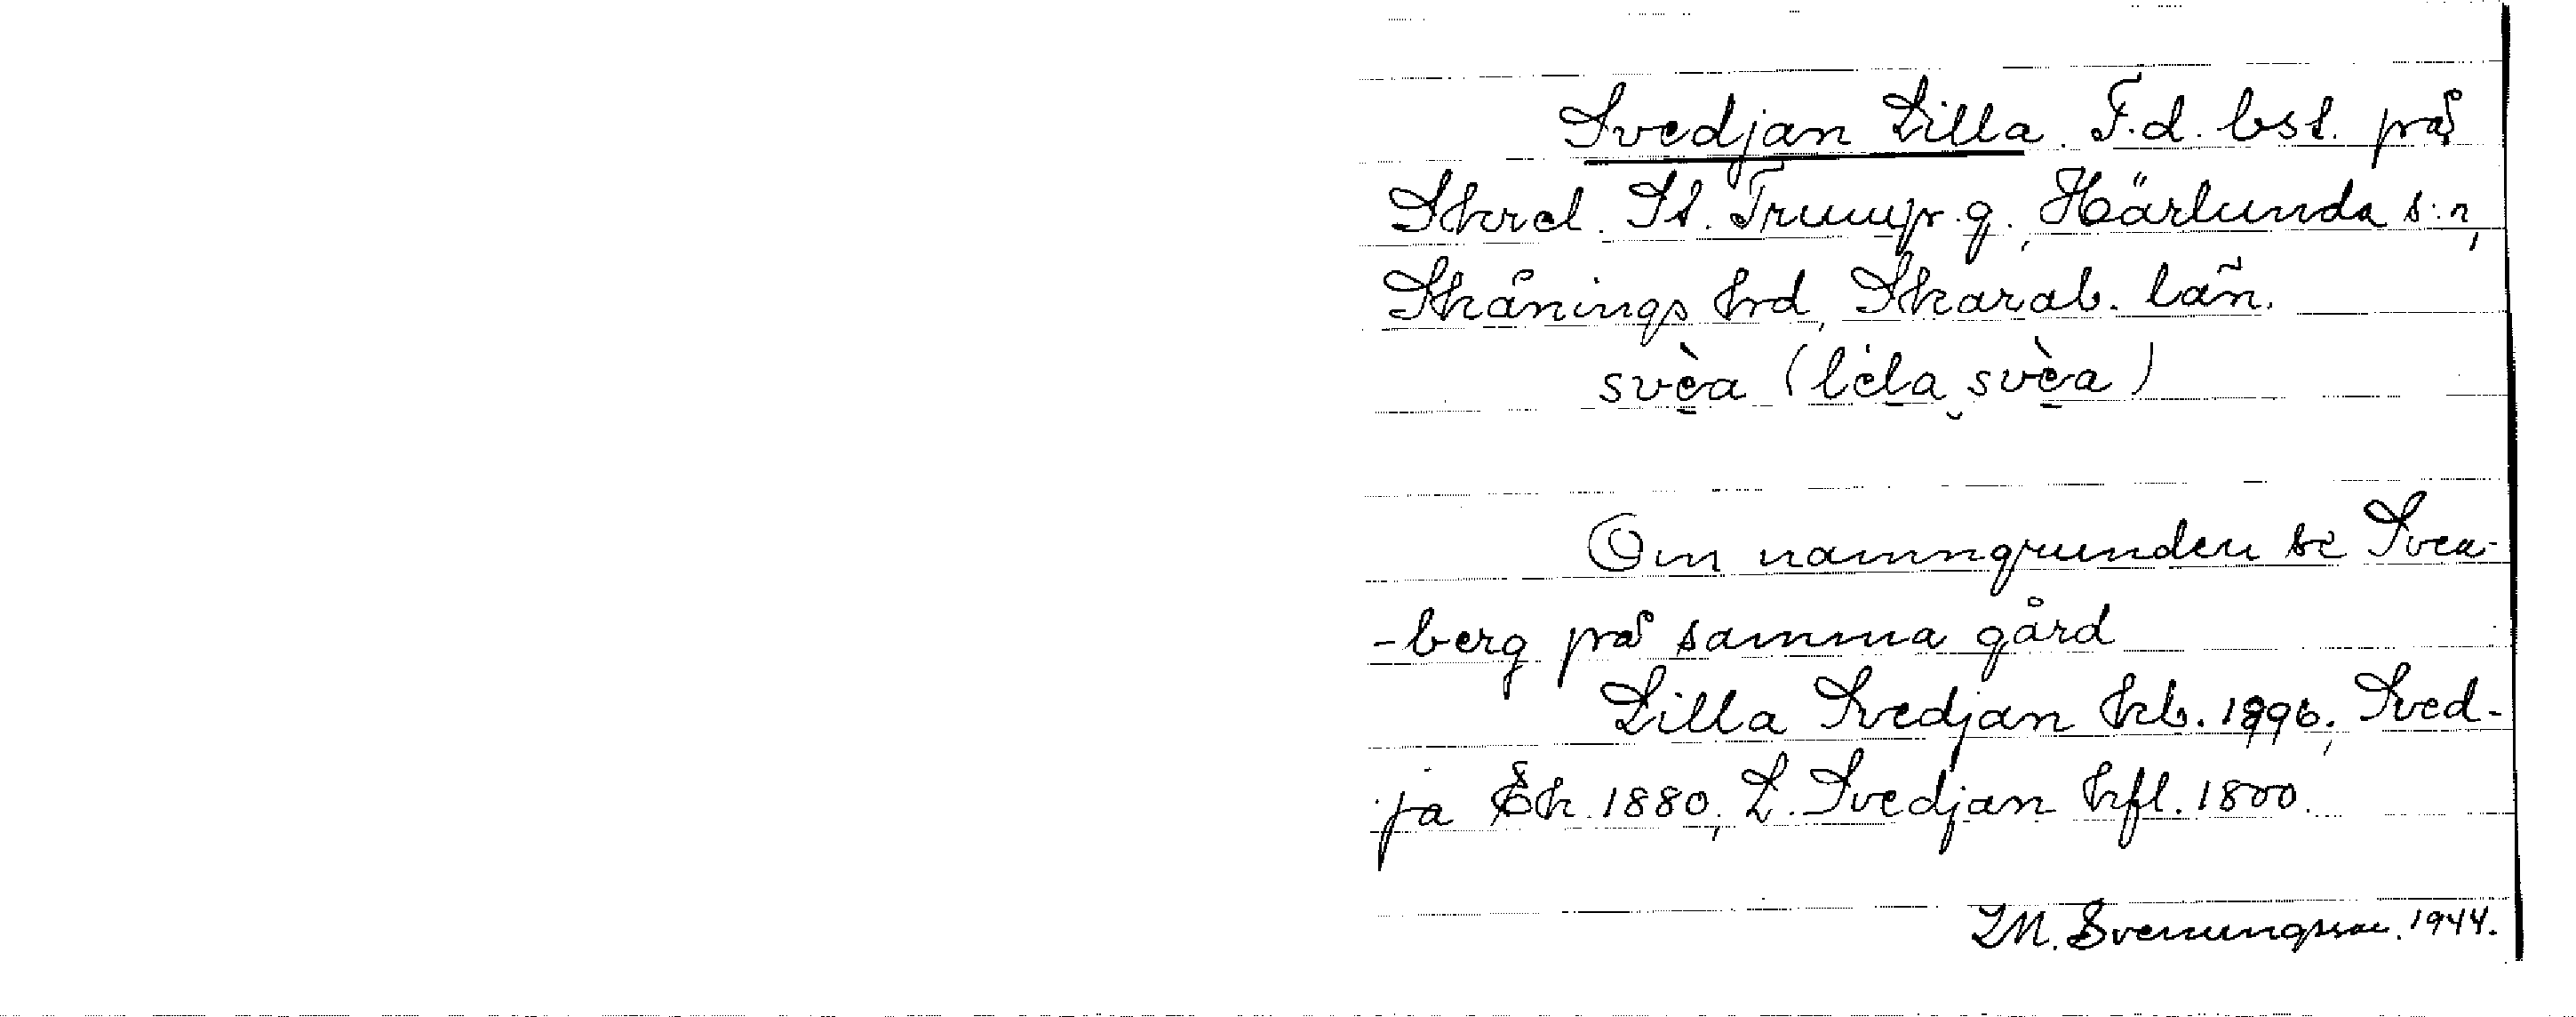 Svedjan Lilla. F.d. bst. på
Skrel. St. Trump.g., Härlunda s:n,
Skånings hrd, Skarab. län.
svèa (lìla svèa)
Om namngrunden se Svea-
-berg på samma gård
Lilla Svedjan hb. 1996; Sved-
ja Ek 1880; L. Svedjan hfl. 1800.
LM. Svenungsson. 1944.